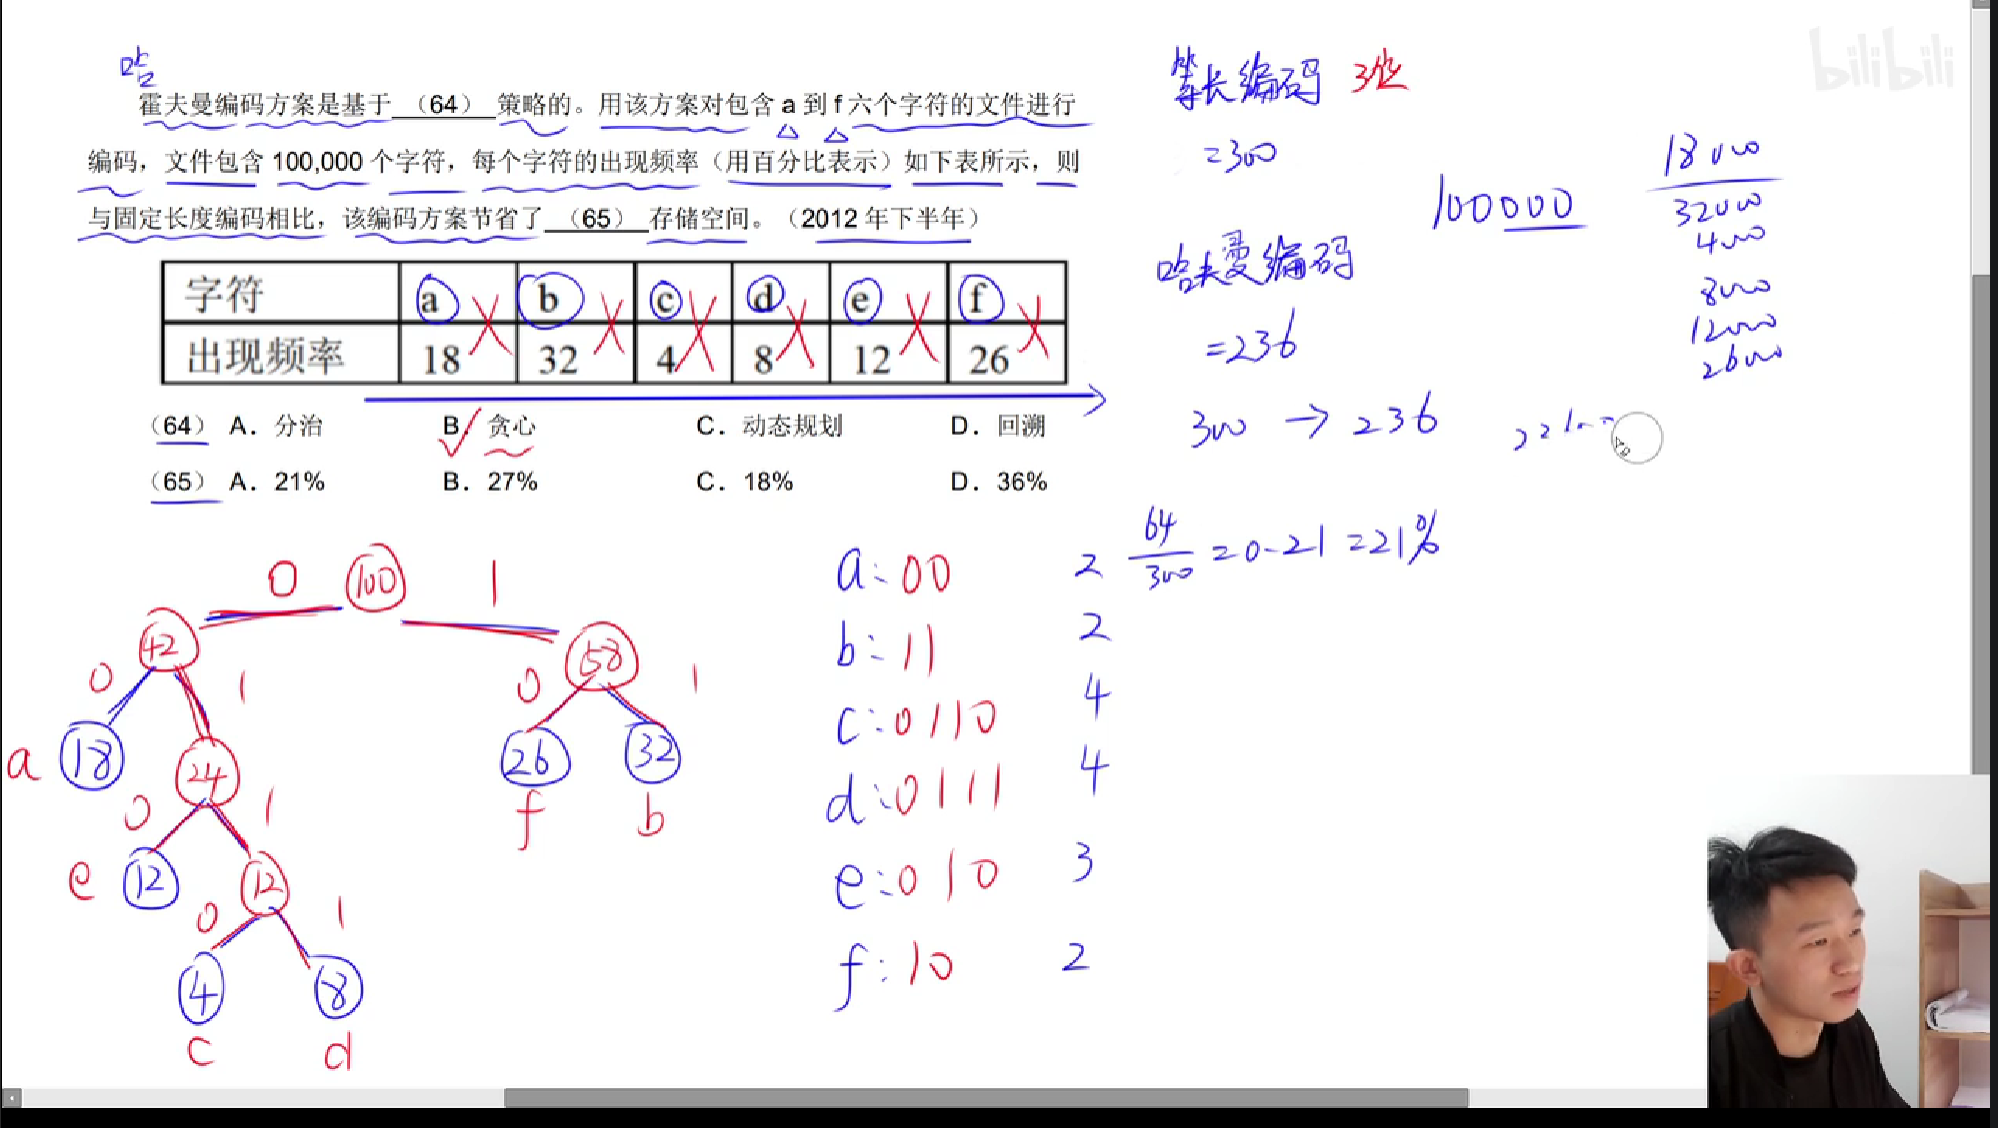 bilibili
哈
霍夫曼编码方案是基于 （64） 策略的。用该方案对包含 a 到 f 六个字符的文件进行
编码，文件包含 100,000 个字符，每个字符的出现频率（用百分比表示）如下表所示，则
与固定长度编码相比，该编码方案节省了 （65） 存储空间。（2012 年下半年）
字符 a b c d e f
出现频率 18 32 4 8 12 26
（64） A. 分治 B. 贪心 C. 动态规划 D. 回溯
（65） A. 21% B. 27% C. 18% D. 36%
等长编码 3位
=300
哈夫曼编码
=236
300 → 236
64
300
=0.21 =21%
100000
18000
32000
4000
8000
12000
26000
0 100 1
42 58
0 1 0 1
a 18 24 26 32
0 1 f b
e 12 12
0 1
4 8
c d
a: 00 2
b: 11 2
c: 0110 4
d: 0111 4
e: 010 3
f: 10 2